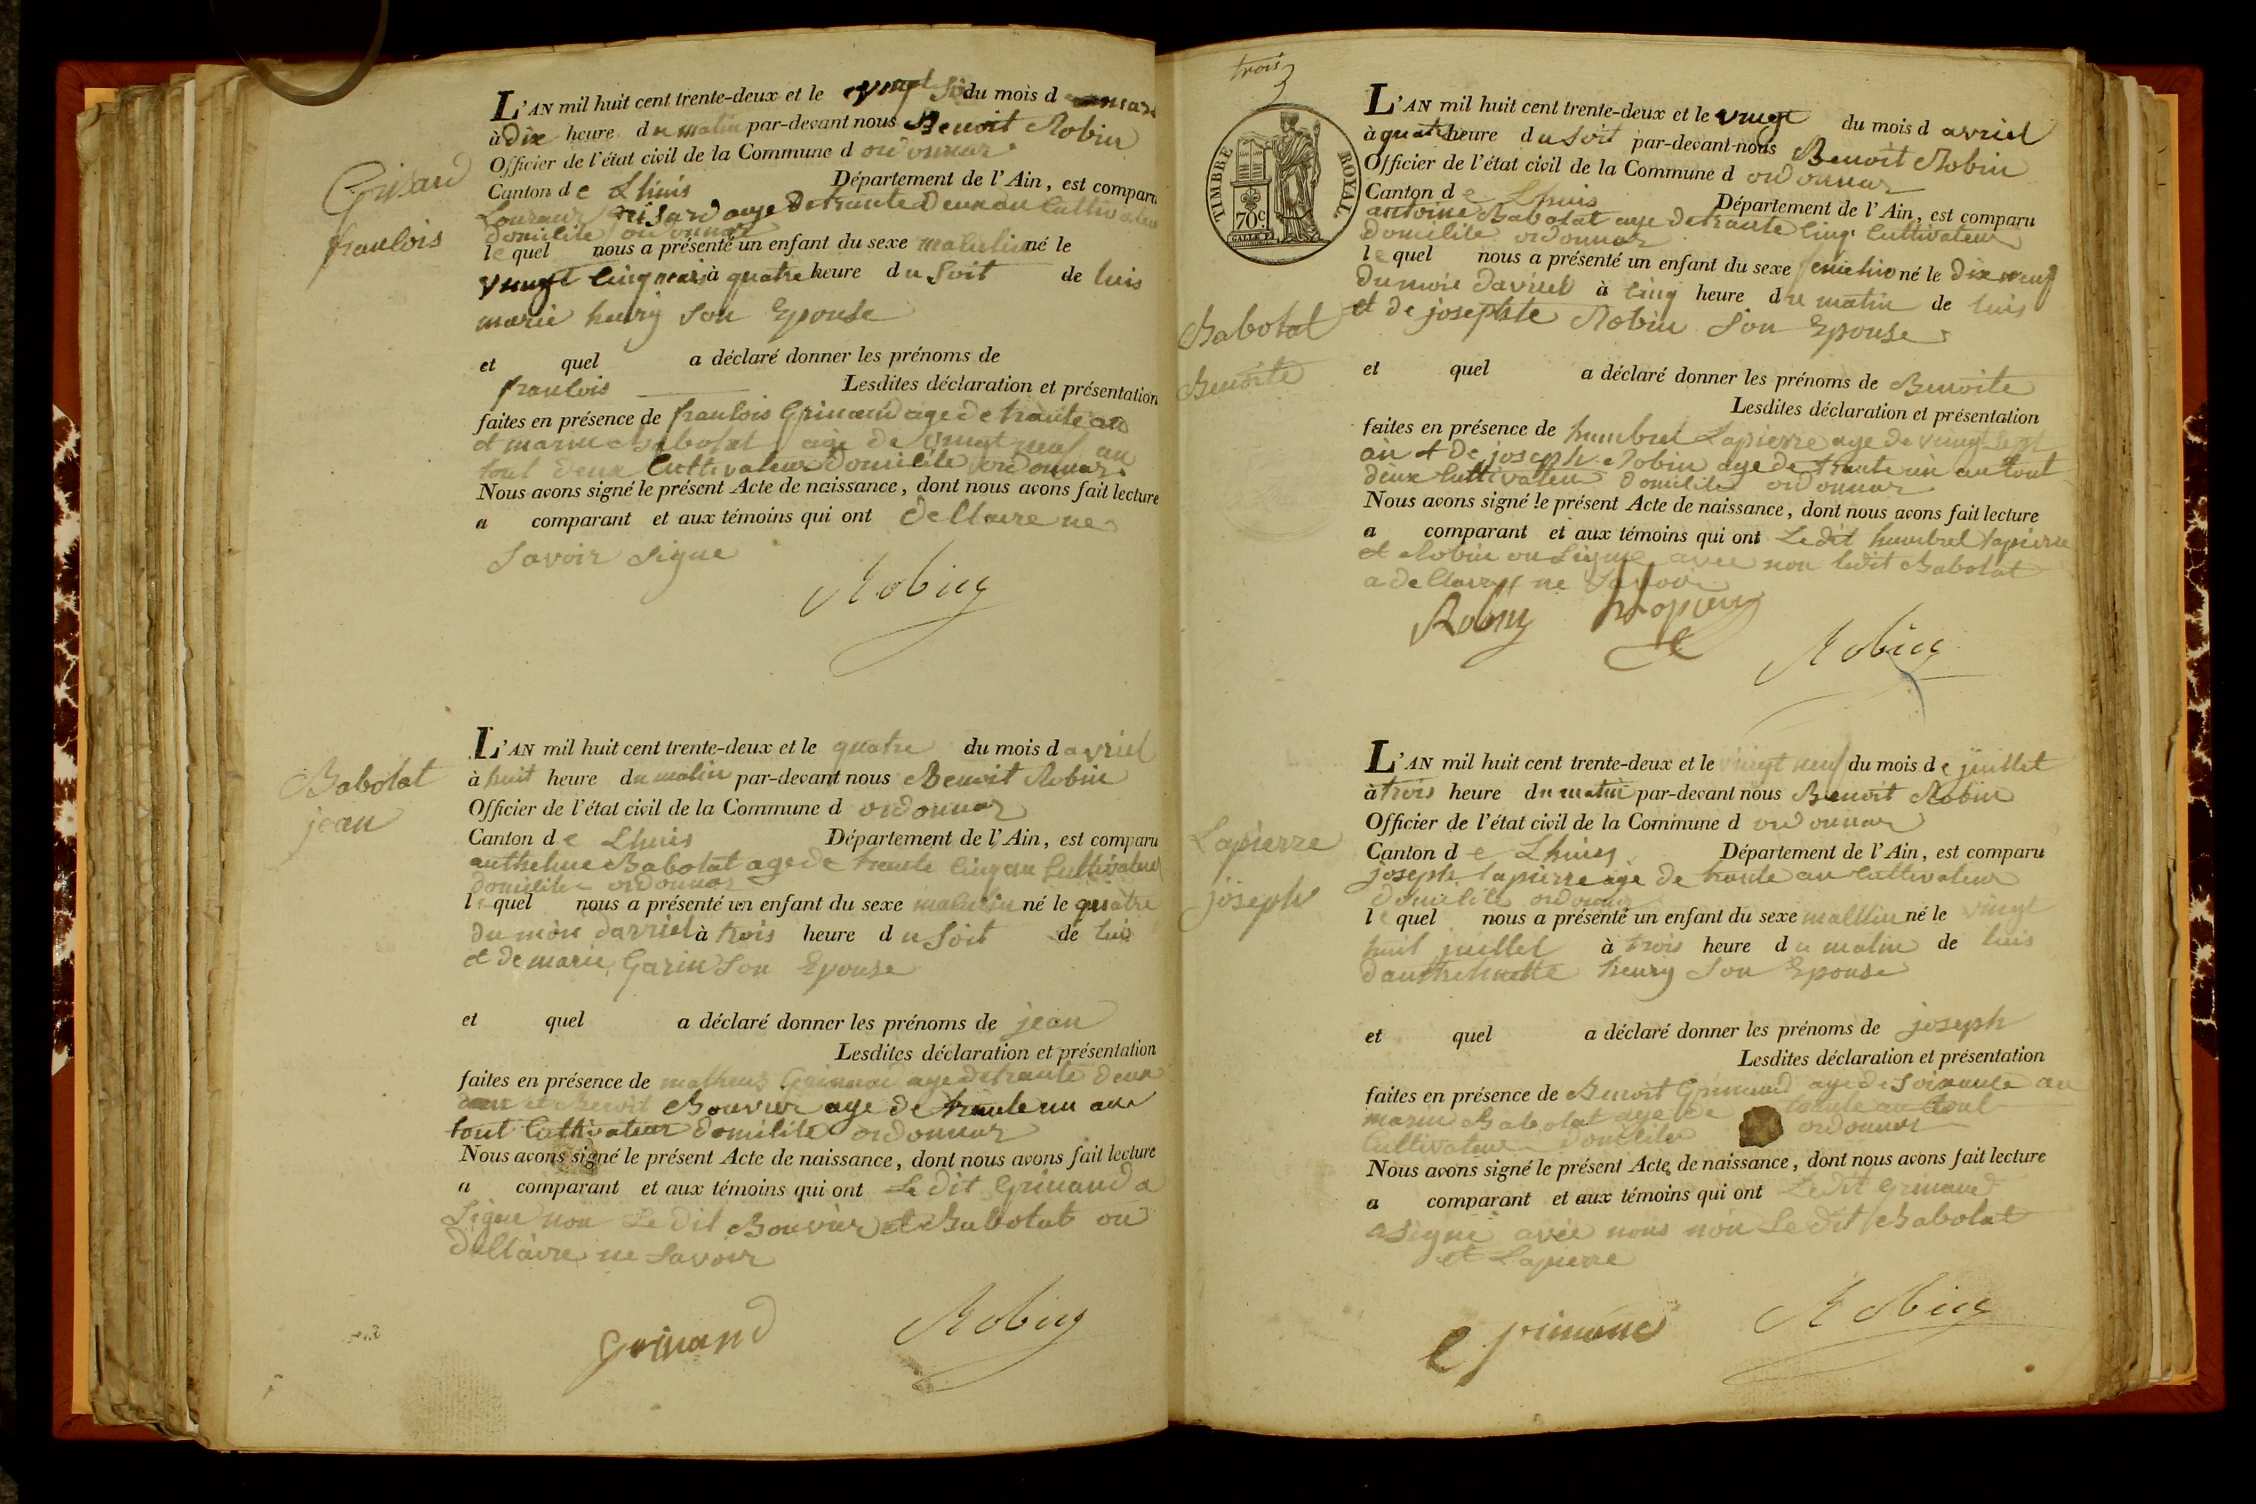 Grisard
francois
L'AN mil huit cent trente-deux et le vingt six du mois d mars
à dix heure du matin par-devant nous Benoit Robin
Officier de l'état civil de la Commune d ordonnaz
Canton de Lhuis Département de l'Ain, est comparu
Grisard age de trante deux an Cultivateur
domicilie ordonnaz
lequel nous a présenté un enfant du sexe né le
vingt cinq mars à quatre heure du Soit de luis
marie henry Son Epouse
et quel a déclaré donner les prénoms de
francois Lesdites déclaration et présentation
faites en présence de francois Grinand age de trante an
et marin Babolat age de vingt neuf an
tout deux Cultivateur domicilie ordonnaz
Nous avons signé le présent Acte de naissance, dont nous avons fait lecture
a comparant et aux témoins qui ont declaire ne
Savoir Signe
Robin
Babolat
jean
L'AN mil huit cent trente-deux et le quatre du mois d avriel
à huit heure du matin par-devant nous Benoit Robin
Officier de l'état civil de la Commune d ordonnaz
Canton de Lhuis Département de l'Ain, est comparu
anthelme Babolat age de trante cinq an Cultivateur
domicilie ordonnaz
lequel nous a présenté un enfant du sexe né le quatre
du mois davriel à trois heure du Soit de luis
et de marie Garin Son Epouse
et quel a déclaré donner les prénoms de jean
Lesdites déclaration et présentation
faites en présence de Grinand age de trante deux
et Benoit Bouvier age de trante un an
tout Cultivateur domicilie ordonnaz
Nous avons signé le présent Acte de naissance, dont nous avons fait lecture
a comparant et aux témoins qui ont Le dit Grinand a
Signe non Le dit Bouvier et Babolat on
dellaire ne Savoir
Grinand Robin
trois
3
TIMBRE ROYAL
70c.
L'AN mil huit cent trente-deux et le vingt du mois d avriel
à quatre heure du Soit par-devant-nous Benoit Robin
Officier de l'état civil de la Commune d ordonnaz
Canton de Lhuis Département de l'Ain, est comparu
antoine Babolat age de trante cinq Cultivateur
domicilie ordonnaz
lequel nous a présenté un enfant du sexe né le dix neuf
du mois davriel à cinq heure du matin de luis
et de josephte Robin Son Epouse
Babolat
Benoite
et quel a déclaré donner les prénoms de Benoite
Lesdites déclaration et présentation
faites en présence de humbert Lapierre age de vingt sept
an et de joseph Robin age de trante un an tout
deux Cultivateur domicilie ordonnaz
Nous avons signé le présent Acte de naissance, dont nous avons fait lecture
a comparant et aux témoins qui ont Le dit humbert lapierre
et Robin on Signe avec non ledit Babolat
a dellaire ne Savoir
Robin Robin
Lapierre
joseph
L'AN mil huit cent trente-deux et le vingt neuf du mois de juillet
à trois heure du matin par-devant nous Benoit Robin
Officier de l'état civil de la Commune d ordonnaz
Canton de Lhuis Département de l'Ain, est comparu
joseph lapierre age de trante an Cultivateur
domicilie ordonnaz
lequel nous a présenté un enfant du sexe né le vingt
huit juillet à trois heure du matin de luis
henry Son Epouse
et quel a déclaré donner les prénoms de joseph
Lesdites déclaration et présentation
faites en présence de Benoit Grinand age de Soixante an
marin Babolat age de trante an tout
Cultivateur domicilie ordonnaz
Nous avons signé le présent Acte de naissance, dont nous avons fait lecture
a comparant et aux témoins qui ont Le dit Grinand
a Signe avec nous non Le dit Babolat
et Lapierre
Robin